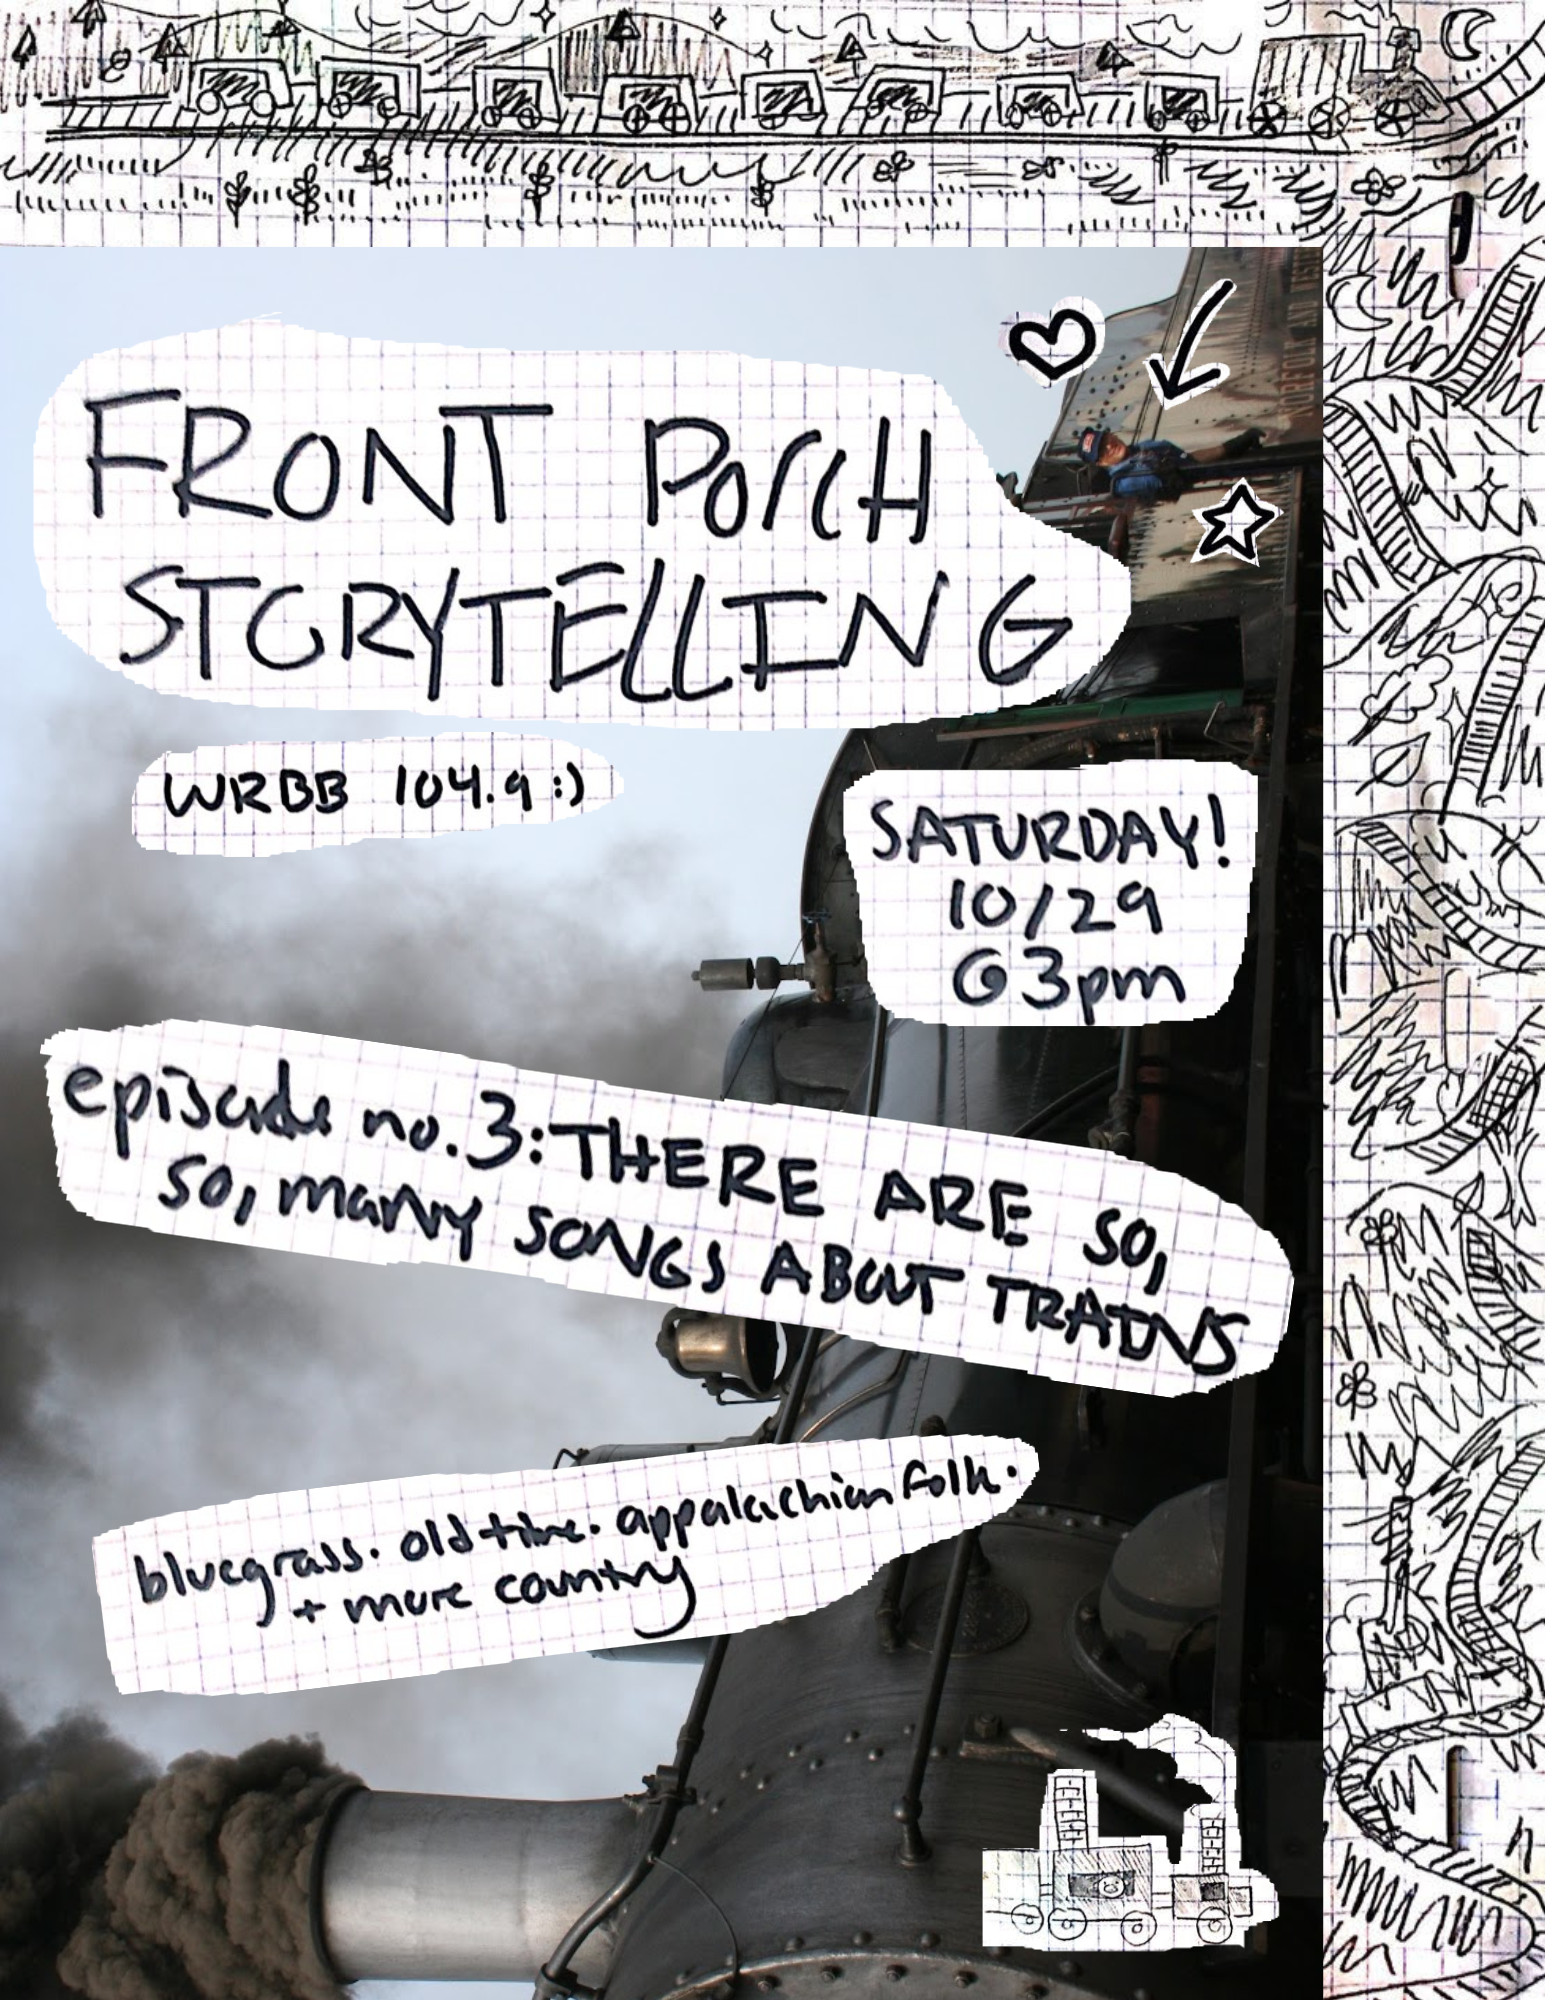 FRONT PORCH
STORYTELLING
WRBB 104.9 :)
SATURDAY!
10/29
@ 3pm
episode no. 3: THERE ARE SO,
SO, MANY SONGS ABOUT TRAINS
bluegrass. old time. appalachian folk.
+ more country
NORFOLK AND WESTE